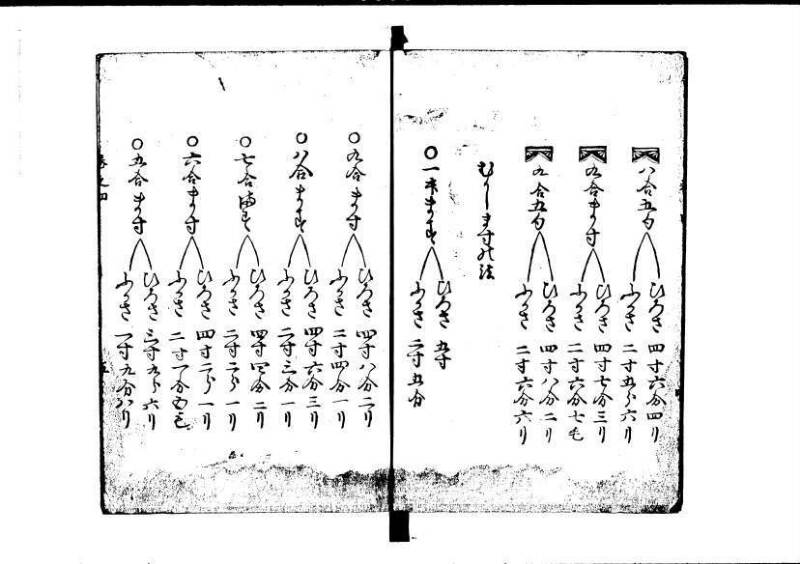 八合五勺
ひろさ 四寸六分四リ
ふかさ 二寸五分六リ
九合ます
ひろさ 四寸七分三リ
ふかさ 二寸六分七毛
九合五勺
ひろさ 四寸八分二リ
ふかさ 二寸六分六リ
むかしますの法
〇一升ます
ひろさ 五寸
ふかさ 二寸五分
〇九合ます
ひろさ 四寸八分二リ
ふかさ 二寸四分一リ
〇八合ます
ひろさ 四寸六分三リ
ふかさ 二寸三分一リ
〇七合ます
ひろさ 四寸四分二リ
ふかさ 二寸二分一リ
〇六合ます
ひろさ 四寸二分一リ
ふかさ 二寸一分五毛
〇五合ます
ひろさ 三寸九分六リ
ふかさ 一寸九分八リ
巻之四